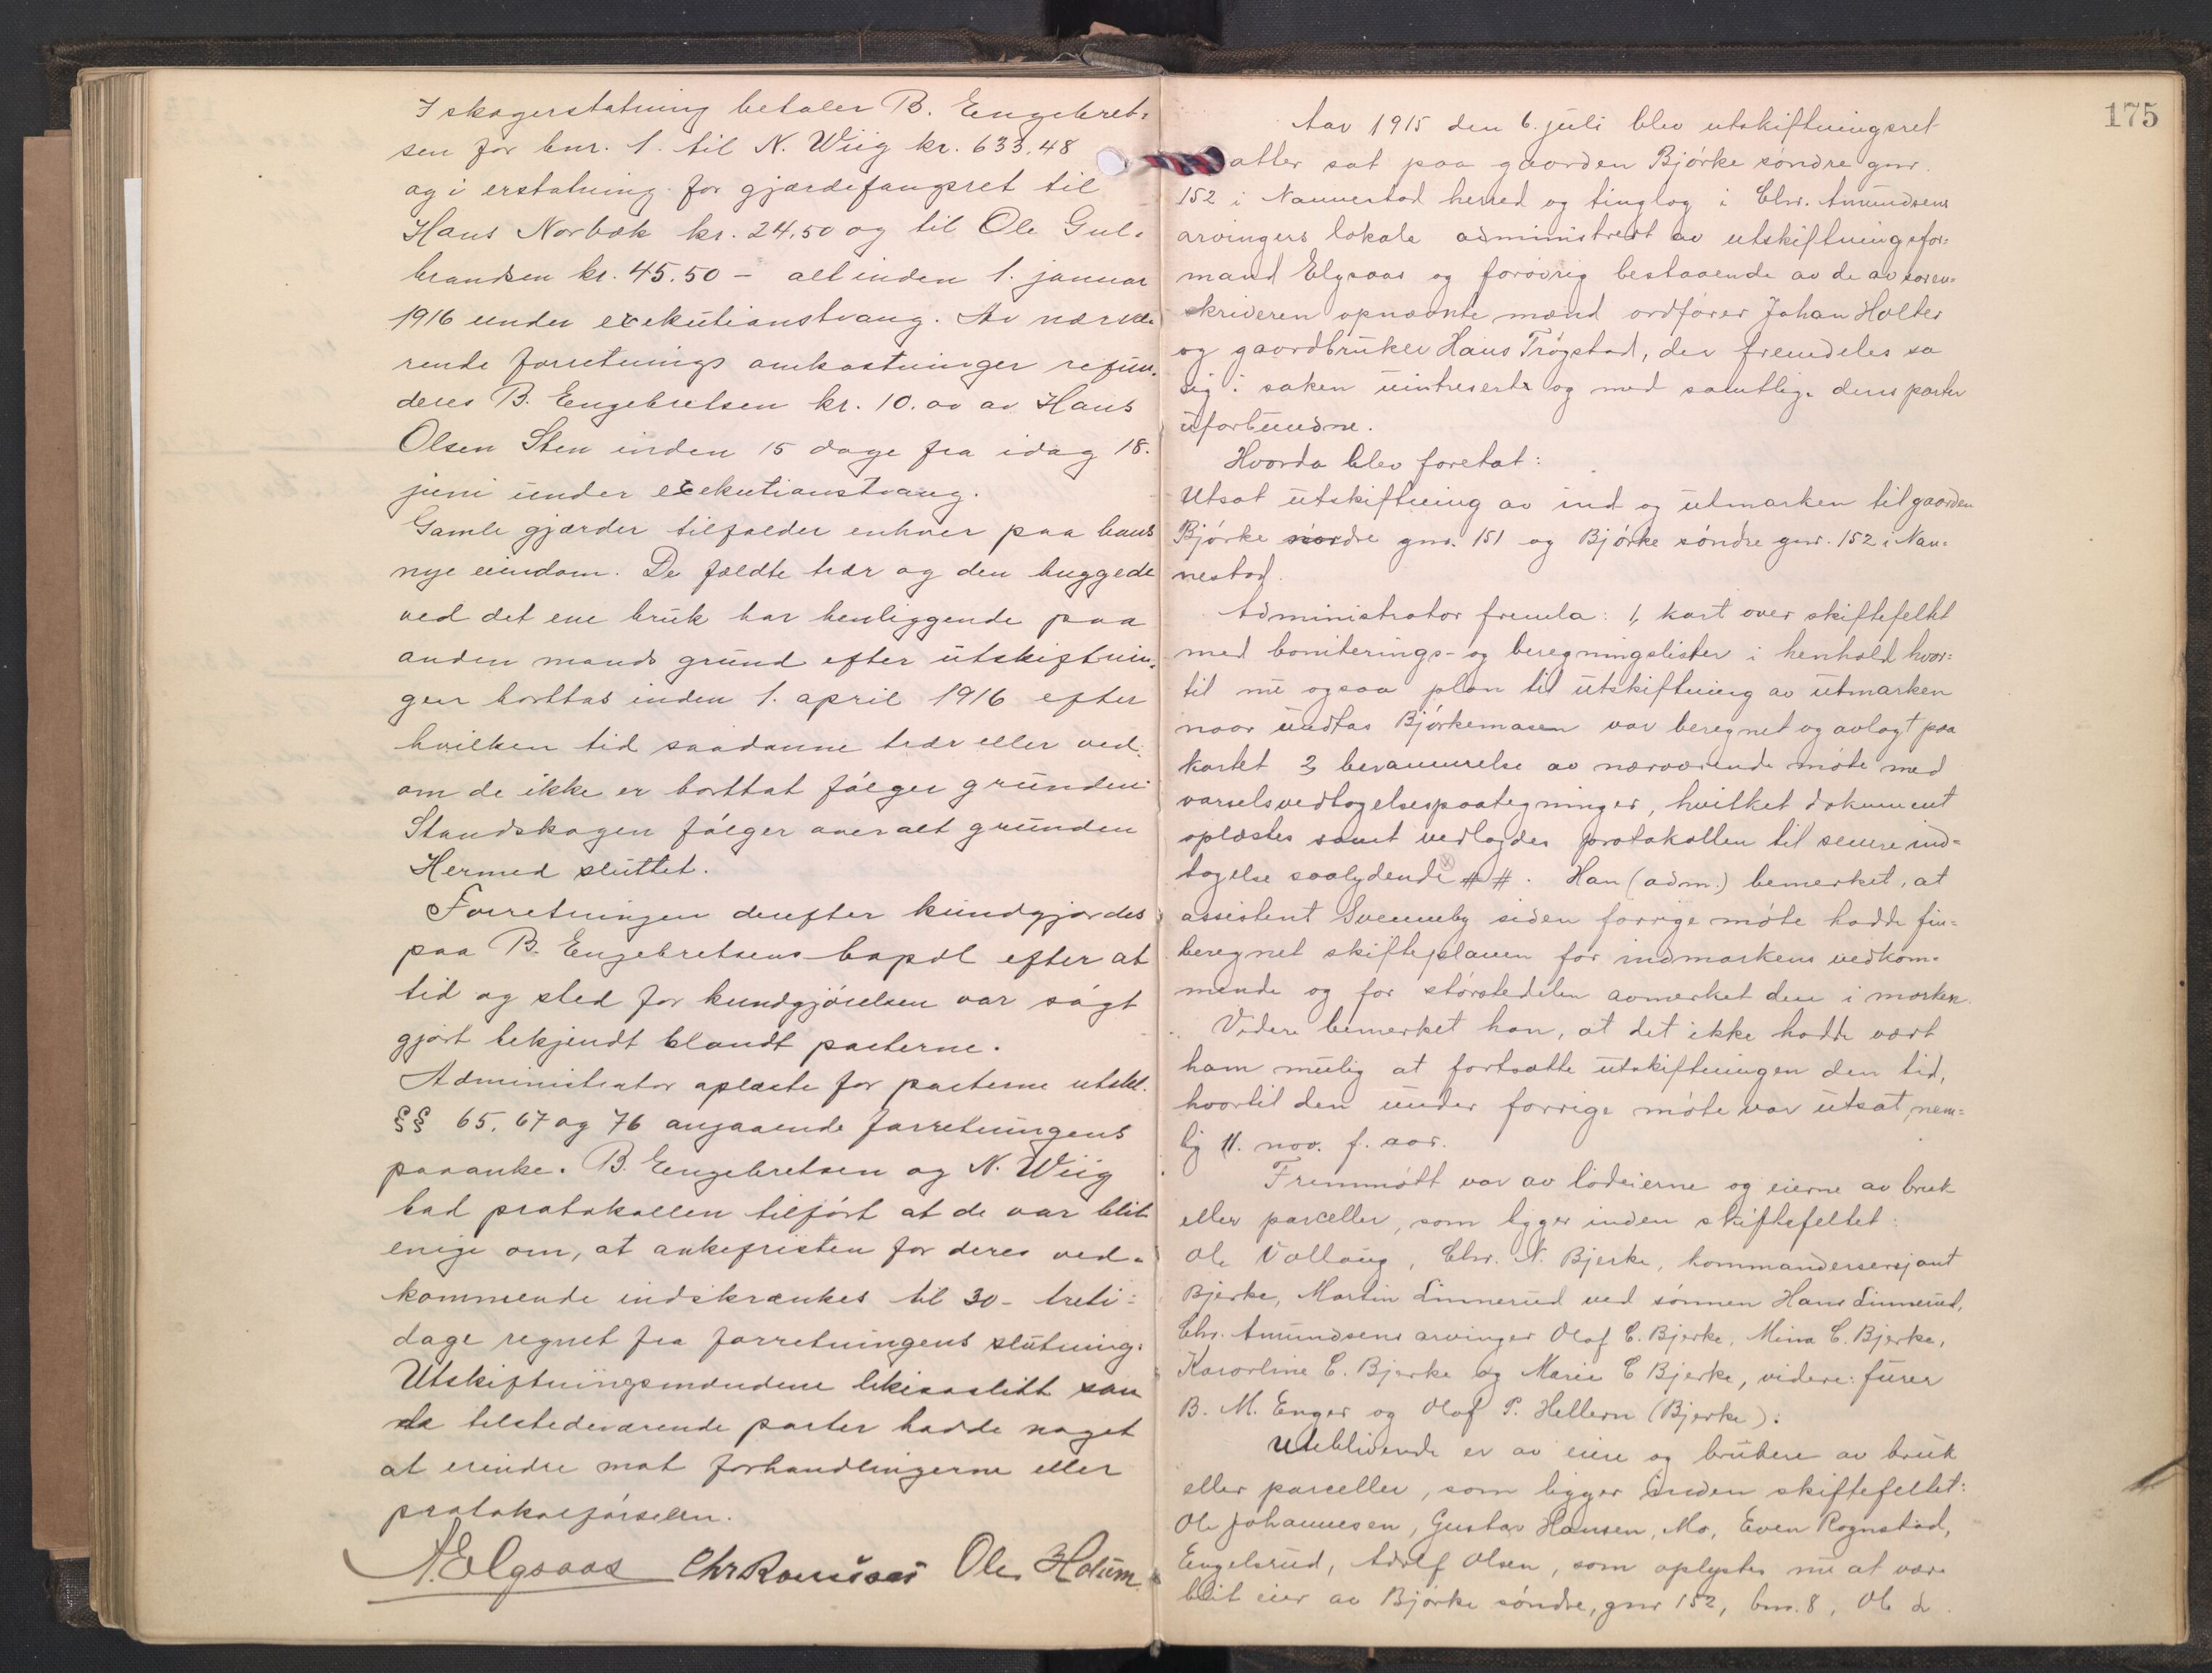 I skogerstatning betaler B. Engebret-
sen for bnr. 1. til N. Wiig kr. 633,48
og i erstatning for gjærdefangsret til
Hans Norbæk kr. 24,50 og til Ole Gul-
brandsen kr. 45.50 – alt inden 1. januar
1916 under exekutionstvang. Av nærvæ-
rende forretnings omkostninger refun-
deres B. Engebretsen kr. 10.00 av Hans
Olsen Sten inden 15 dage fra idag 18.
juni under exekutionstvang.
Gamle gjærder tilfalder enhver paa hans
nye eiendom. De fældte trær og den huggede
ved det ene bruk har henliggende paa
anden mands grund efter utskiftnin-
gen borttas inden 1. april 1916 efter
hvilken tid saadanne trær eller ved
om de ikke er borttat følger grunden
Standskogen følger overalt grunden
Hermed sluttet.
Forretningen derefter kundgjordes
paa B. Engebretsens bopæl efter at
tid og sted for kundgjørelsen var søgt
gjort bekjendt blandt parterne.
Administrator oplæste for parterne utskl.
§§ 65, 67 og 76 angaaende forretningens
paaanke. B. Engebretsen og N. Wiig
bad protokollen tilført at de var blit
enige om, at ankefristen for deres ved-
kommende indskrænkes til 30 – treti –
dage regnet fra forretningens slutning.
Utskiftningsmændene likesaalitt som
de tilstedeværende parter hadde noget
at erindre mot forhandlingerne eller
protokolførselen.
A. Elgsaas Chr Ole Holum
175
Aar 1915 den 6. juli blev utskiftningsret
atter sat paa gaarden Bjørke søndre gnr.
152 i Nannestad herred og tinglag i Chr. Amundsens
arvingers lokale administrert av utskiftningsfor-
mand Elgsaas og forøvrig bestaaende av de av soren-
skriveren opnævnte mænd ordfører Johan Holter
og gaardbruker Hans Trøgstad, der fremdeles sa
sig i saken uintreserte og med samtlige deres parter
uforbundne.
Hvorda blev foretat:
Utsat utskiftning av ind og utmarken til gaarden
Bjørke nordre gnr. 151 og Bjørke søndre gnr. 152 i Nan-
nestad.
Administrator fremla: 1, kart over skiftefeltet
med boniterings- og beregningslister i henhold hvor-
til nu ogsaa plan til utskiftning av utmarken
naar undtas Bjørkemasen var beregnet og avlagt paa
kartet 2, berammelse av nærværende møte med
varselsvedtagelsespaategninger, hvilket dokument
oplæstes samt vedlagdes protokollen til senere ind-
tagelse saalydende # #. Han (adm.) bemerket, at
assistent Svenneby siden forrige møte hadde fin-
beregnet skifteplanen for indmarkens vedkom-
mende og for størstedelen avmerket den i marken.
Videre bemerket han, at det ikke hadde vært
ham mulig at fortsætte utskiftningen den tid,
hvortil den under forrige møte var utsat, nem-
lig 11. nov. f. aar.
Fremmøtt var av lodeierne og eierne av bruk
eller parceller, som ligger inden skiftefeltet:
Ole Vollaug, Chr. N. Bjerke, kommandersersjant
Bjerke, Martin Linnerud ved sønnen Hans Linnerud,
Chr. Amundsens arvinger Olaf C. Bjerke, Mina C. Bjerke,
Karorline C. Bjerke og Marie C Bjerke, videre: furer
B. M. Enger og Olaf P. Hellern (Bjerke).
Uteblivende er av eiere og brukere av bruk
eller parceller, som ligger inden skiftefeltet:
Ole Johannesen, Gustav Hansen, Mo, Even Rognstad,
Engelsrud, Adolf Olsen, som oplystes nu at være
blit eier av Bjørke søndre, gnr 152, bnr. 8, Ole